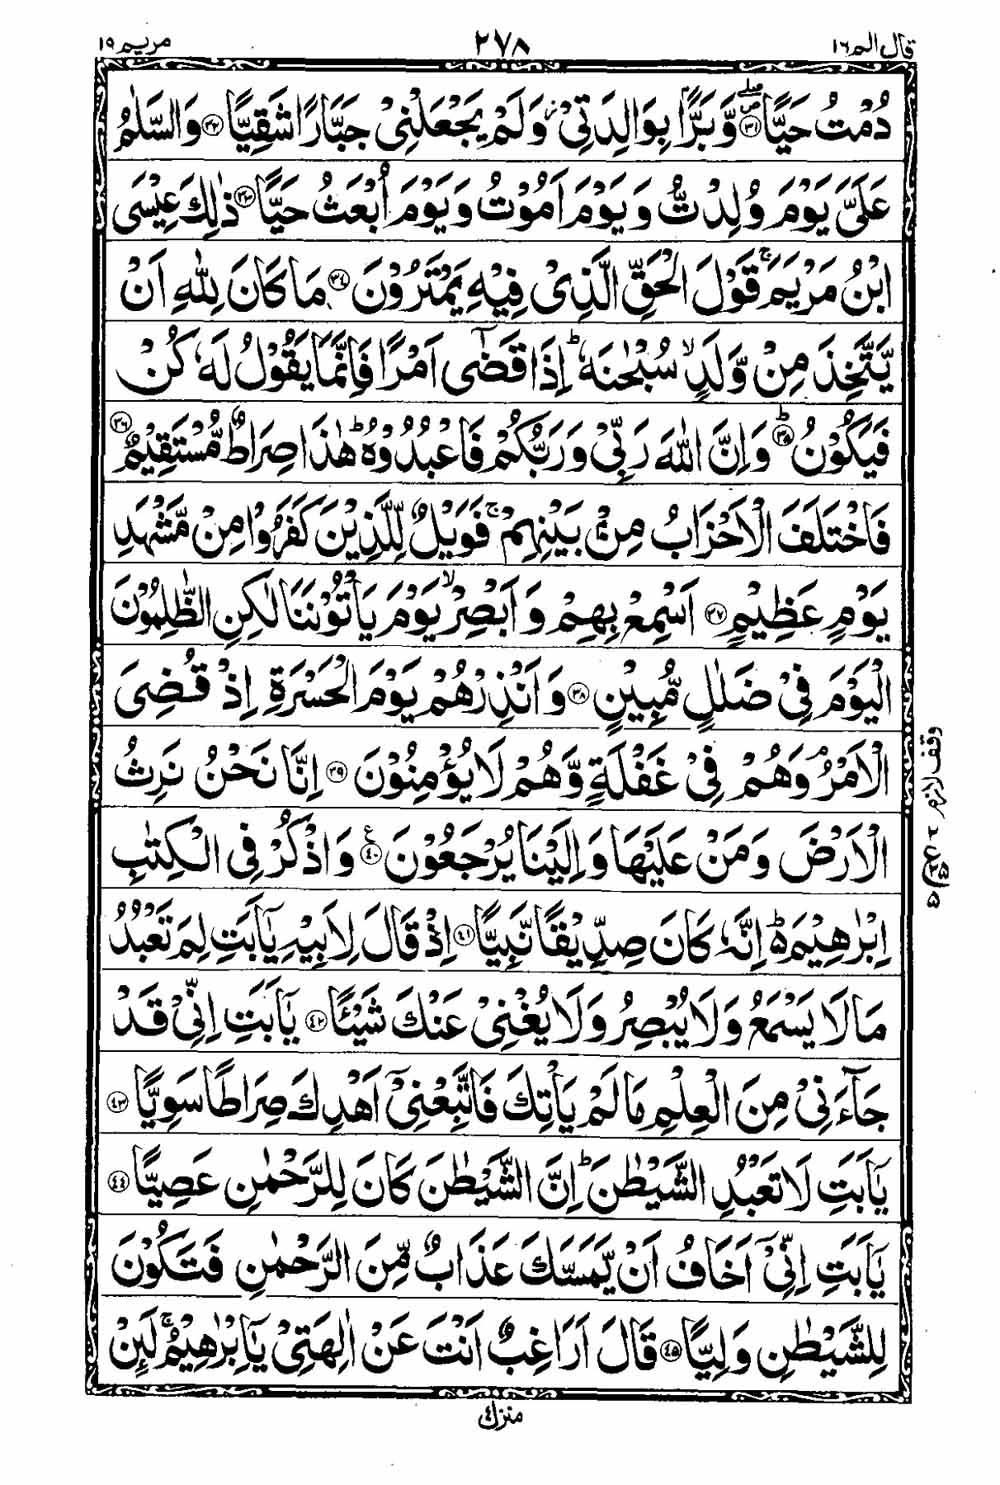 قال الم ١٦ ٢٧٨ مريم ١٩
دُمْتُ حَيًّا ﴿٣١﴾ وَّبَرًّۢا بِوَالِدَتِىْ وَلَمْ يَجْعَلْنِىْ جَبَّارًا شَقِيًّا ﴿٣٢﴾ وَالسَّلٰمُ
عَلَىَّ يَوْمَ وُلِدْتُّ وَيَوْمَ اَمُوْتُ وَيَوْمَ اُبْعَثُ حَيًّا ﴿٣٣﴾ ذٰلِكَ عِيْسَى
ابْنُ مَرْيَمَ ۚ قَوْلَ الْحَقِّ الَّذِىْ فِيْهِ يَمْتَرُوْنَ ﴿٣٤﴾ مَا كَانَ لِلّٰهِ اَنْ
يَّتَّخِذَ مِنْ وَّلَدٍ ۙ سُبْحٰنَهٗ ؕ اِذَا قَضٰٓى اَمْرًا فَاِنَّمَا يَقُوْلُ لَهٗ كُنْ
فَيَكُوْنُ ؕ ﴿٣٥﴾ وَاِنَّ اللّٰهَ رَبِّىْ وَرَبُّكُمْ فَاعْبُدُوْهُ ؕ هٰذَا صِرَاطٌ مُّسْتَقِيْمٌ ﴿٣٦﴾
فَاخْتَلَفَ الْاَحْزَابُ مِنْۢ بَيْنِهِمْ ۚ فَوَيْلٌ لِّلَّذِيْنَ كَفَرُوْا مِنْ مَّشْهَدِ
يَوْمٍ عَظِيْمٍ ﴿٣٧﴾ اَسْمِعْ بِهِمْ وَاَبْصِرْ ۙ يَوْمَ يَاْتُوْنَنَا لٰكِنِ الظّٰلِمُوْنَ
الْيَوْمَ فِىْ ضَلٰلٍ مُّبِيْنٍ ﴿٣٨﴾ وَاَنْذِرْهُمْ يَوْمَ الْحَسْرَةِ اِذْ قُضِىَ
الْاَمْرُ ۘ وَهُمْ فِىْ غَفْلَةٍ وَّهُمْ لَا يُؤْمِنُوْنَ ﴿٣٩﴾ اِنَّا نَحْنُ نَرِثُ
الْاَرْضَ وَمَنْ عَلَيْهَا وَاِلَيْنَا يُرْجَعُوْنَ ﴿٤٠﴾ ع وَاذْكُرْ فِى الْكِتٰبِ
اِبْرٰهِيْمَ ؕ اِنَّهٗ كَانَ صِدِّيْقًا نَّبِيًّا ﴿٤١﴾ اِذْ قَالَ لِاَبِيْهِ يٰٓاَبَتِ لِمَ تَعْبُدُ
مَا لَا يَسْمَعُ وَلَا يُبْصِرُ وَلَا يُغْنِىْ عَنْكَ شَيْـًٔا ﴿٤٢﴾ يٰٓاَبَتِ اِنِّىْ قَدْ
جَآءَنِىْ مِنَ الْعِلْمِ مَا لَمْ يَاْتِكَ فَاتَّبِعْنِىْٓ اَهْدِكَ صِرَاطًا سَوِيًّا ﴿٤٣﴾
يٰٓاَبَتِ لَا تَعْبُدِ الشَّيْطٰنَ ؕ اِنَّ الشَّيْطٰنَ كَانَ لِلرَّحْمٰنِ عَصِيًّا ﴿٤٤﴾
يٰٓاَبَتِ اِنِّىْٓ اَخَافُ اَنْ يَّمَسَّكَ عَذَابٌ مِّنَ الرَّحْمٰنِ فَتَكُوْنَ
لِلشَّيْطٰنِ وَلِيًّا ﴿٤٥﴾ قَالَ اَرَاغِبٌ اَنْتَ عَنْ اٰلِهَتِىْ يٰٓاِبْرٰهِيْمُ ۚ لَئِنْ
منزل ٤
وقف لازم